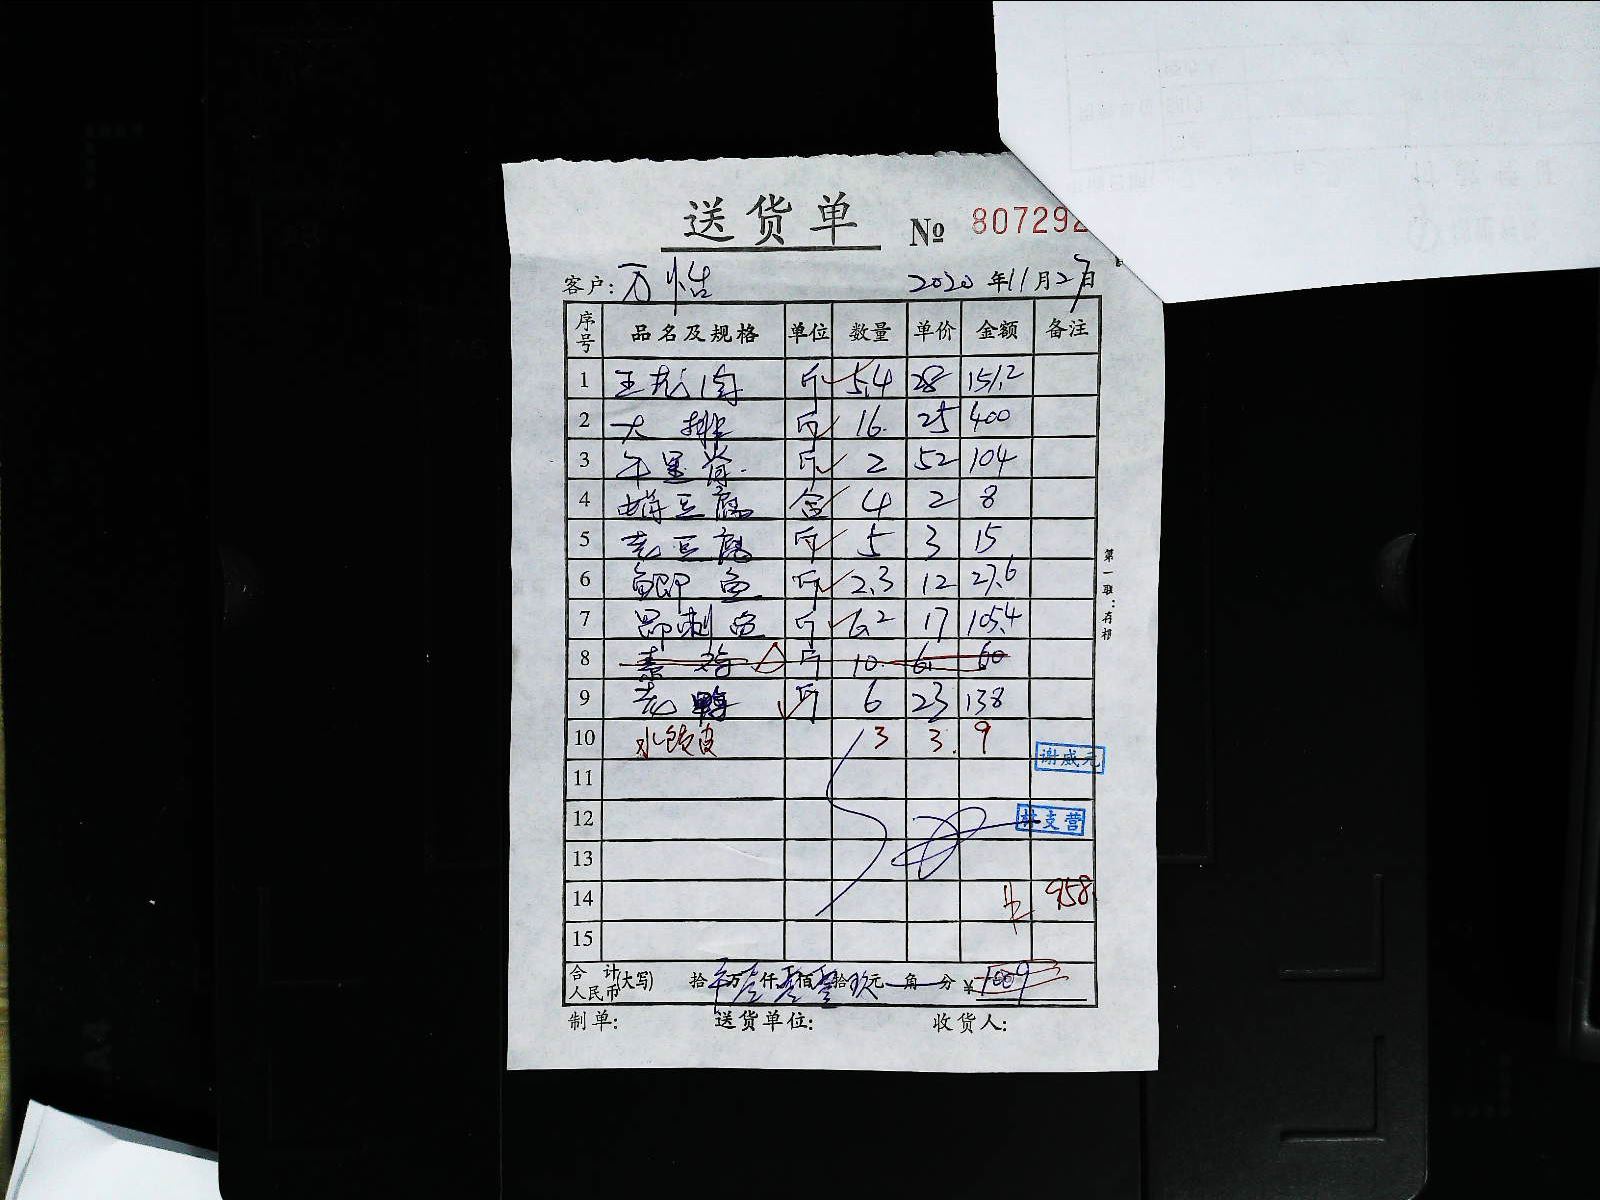 送货单 № 807292
客户: 万怡 2020年11月27日
序号 品名及规格 单位 数量 单价 金额 备注
1 斤 5.4 28 151.2
2 大排 斤 16 25 400
3 斤 2 52 104
4 豆腐 盒 4 2 8
5 老豆腐 斤 5 3 15
6 鲫鱼 斤 2.3 12 27.6
7 昂刺鱼 斤 6.2 17 105.4
8 素鸡 斤 10 6 60
9 老鸭 斤 6 23 138
10 水饺皮 3 3 9
谢威元
11
12 林支营
13
14 958
15
合计人民币(大写) 拾万壹仟零佰壹拾玖元角分 ¥1009
制单: 送货单位: 收货人:
第一联:存根